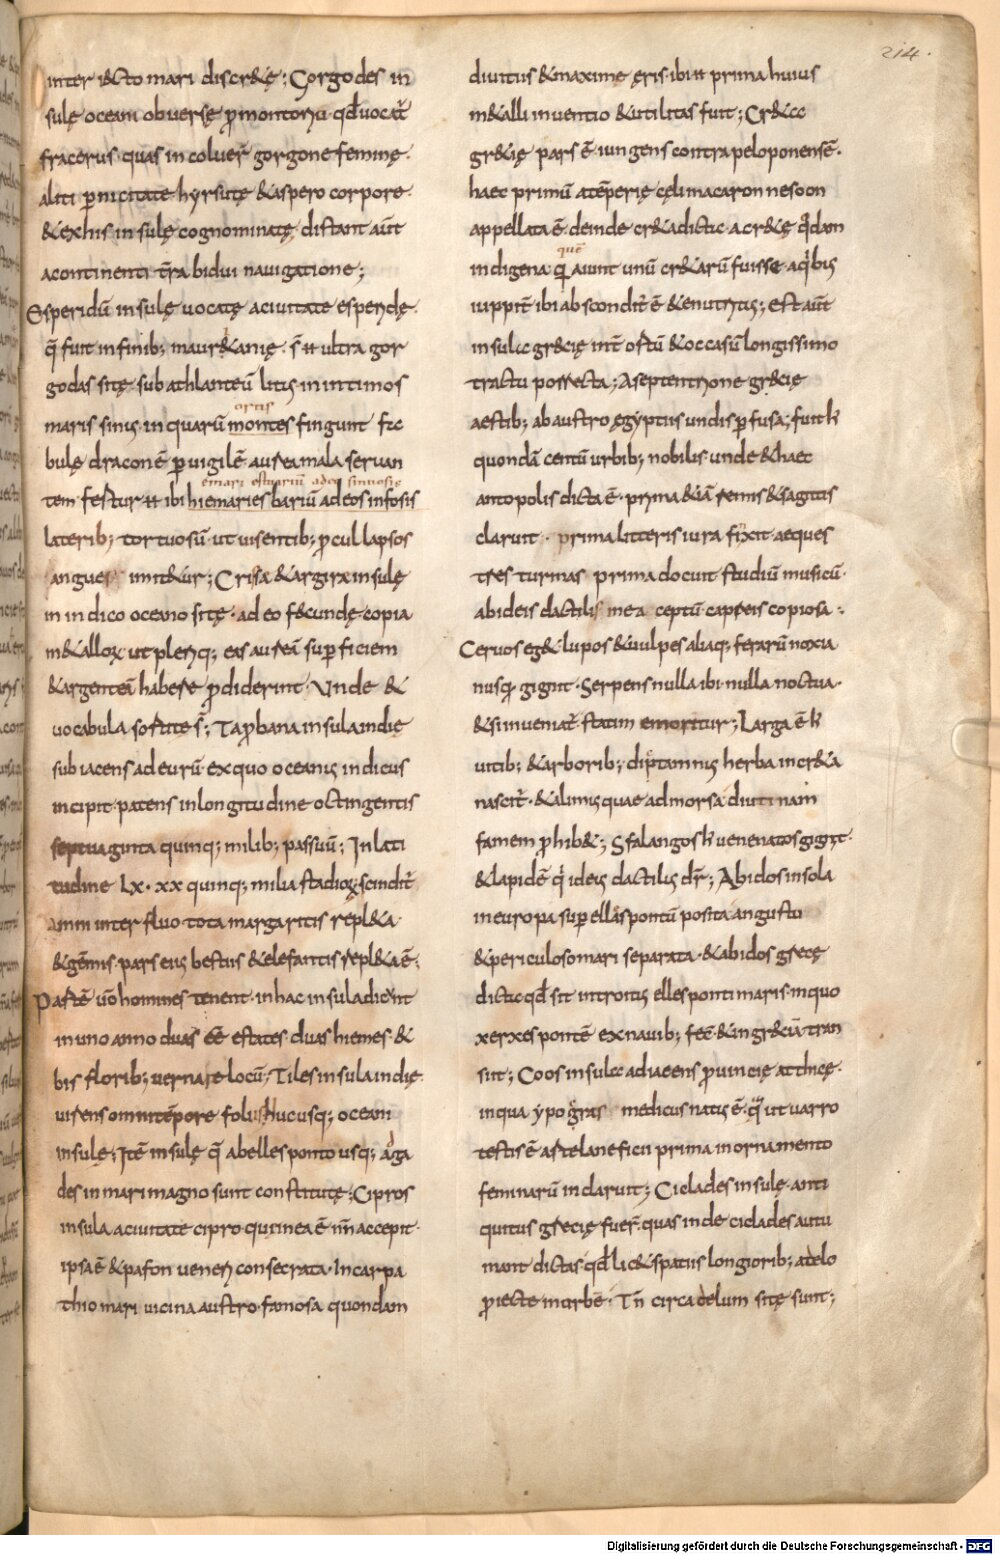 214.
inter iecto mari discretę; Gorgodes in
sulę oceani obversę ꝓmontoriu · qđ vocat̄
fracerus · quas incoluer̄ gorgone feminę ·
aliti ꝑnicitate hyrsutę & aspero corpore ·
& ex his insulę cognominatę distant aūt
a continenti t̄ra bidui navigatione;
Esperidū insulę uocatę a civitate esperidę ·
q̄ fuit in finib; maur&anię · s̄t ultra gor
godas sitę sub athlanteū litis in intimos
ortis
maris sinus · in quarū montes fingunt fa
bulę draconē ꝑvigilē aurea mala servan
emari estuariū adeo sinuosis
tem fertur ibi hiemaries bariū ad eos infosis
laterib; tortuosū ut visentib; ꝓcul lapsos
angues imit&ur; Crisa & argira insulę
in indico oceano sitę · ad eo fecundę copia
m&alloꝝ ut pleriq; eas aureā suꝑficiem
& argenteā habere ꝓdiderint · Unde &
vocabula sortite s̄; Taprobana insula indię
subiacens ad eurū ex quo oceanus indicus
incipit · patens in longitudine octingentis
septuaginta quinq; milib; passuū; In lati
tudine lx · xx quinq; milia stadioꝝ; scindit̄
amni inter fluo · tota margaritis repl&a ·
& gēmis · pars eius bestiis & elefantis repl&a ē ·
Partē ūo homines tenent · in hac insula dicunt
in uno anno duas ēē estates · duas hiemes · &
bis florib; vernare locū; Tiles insula indię
virens omni tēpore foliis Hucusq; oceani
insulę; Itē insulę q̄ ab ellesponto usq; ad ga
des in mari magno sunt constitutę; Cipros
insula a civitate cipro qui in ea ē nm̄ accepit ·
ipsa ē & pafon veneri consecrata · In carpa
thio mari vicina austro · famosa quondam
divitiis & maxime ęris · ibi prima huius
m&alli inventio & utilitas fuit; Cr&a
gr&ię pars ē iungens contra peloponensē ·
haec primū a tēperię cęli macaron nesoon
appellata ē · deinde cr&a dicta a cr&ę qdam
quē
indigena q̄ aiunt unū cr&arū fuisse a qbus
iuppit̄ ibi absconditꝰ ē & enutritus; Est aūt
insula gr&cię int̄ ortū & occasū longissimo
tractu porrecta; A septentrione gr&cię
aestib; ab austro ęgyptiis undis ꝑfusa; fuit h̄
quondā centū urbib; nobilis · unde & haec
antopolis dicta ē · prima & iā remis & sagittis
claruit · prima litteris iura finxit · aeques
tres turmas prima docuit studiū musicū ·
ab ideis dactilis in ea ceptū · capreis copiosa ·
Cervos eg& lupos & vulpes aliaq; ferarū noxia
nusq̄ gignit · Serpens nulla ibi nulla noctua ·
& si inveniat̄ · statim emoritur; Larga ē h̄
vitib; & arborib; diptamnus herba in cr&a
nascit̄ · & alimus quae admorsa diuti nam
famem ꝓhib&; Sfalangos h̄ venenatos gignit ·
& lapidē qi ideus dactilus dr̄; Abidos insola
in europa suꝑ ellaspontū posita angusto
& periculoso mari separata · & abidos grecę
dicta qđ sit introitus elles ponti maris · in quo
xerxes pontē ex navib; fec̄ · & in gr&ciā tran
siit; Coos insula adiacens ꝓvincię atthicę ·
in qua ypogras medicus natus ē · q̄ ut varro
testis ē arte lanificii prima in ornamento
feminarū inclaruit; Ciclades insulę · anti
quitus grecię fuer̄ · quas inde cicladas autu
mant dictas qđ lic& spatiis longiorib; a delo
ꝓiecte in urbē · Tn̄ circa delum sitę sunt;
Digitalisierung gefördert durch die Deutsche Forschungsgemeinschaft - DFG